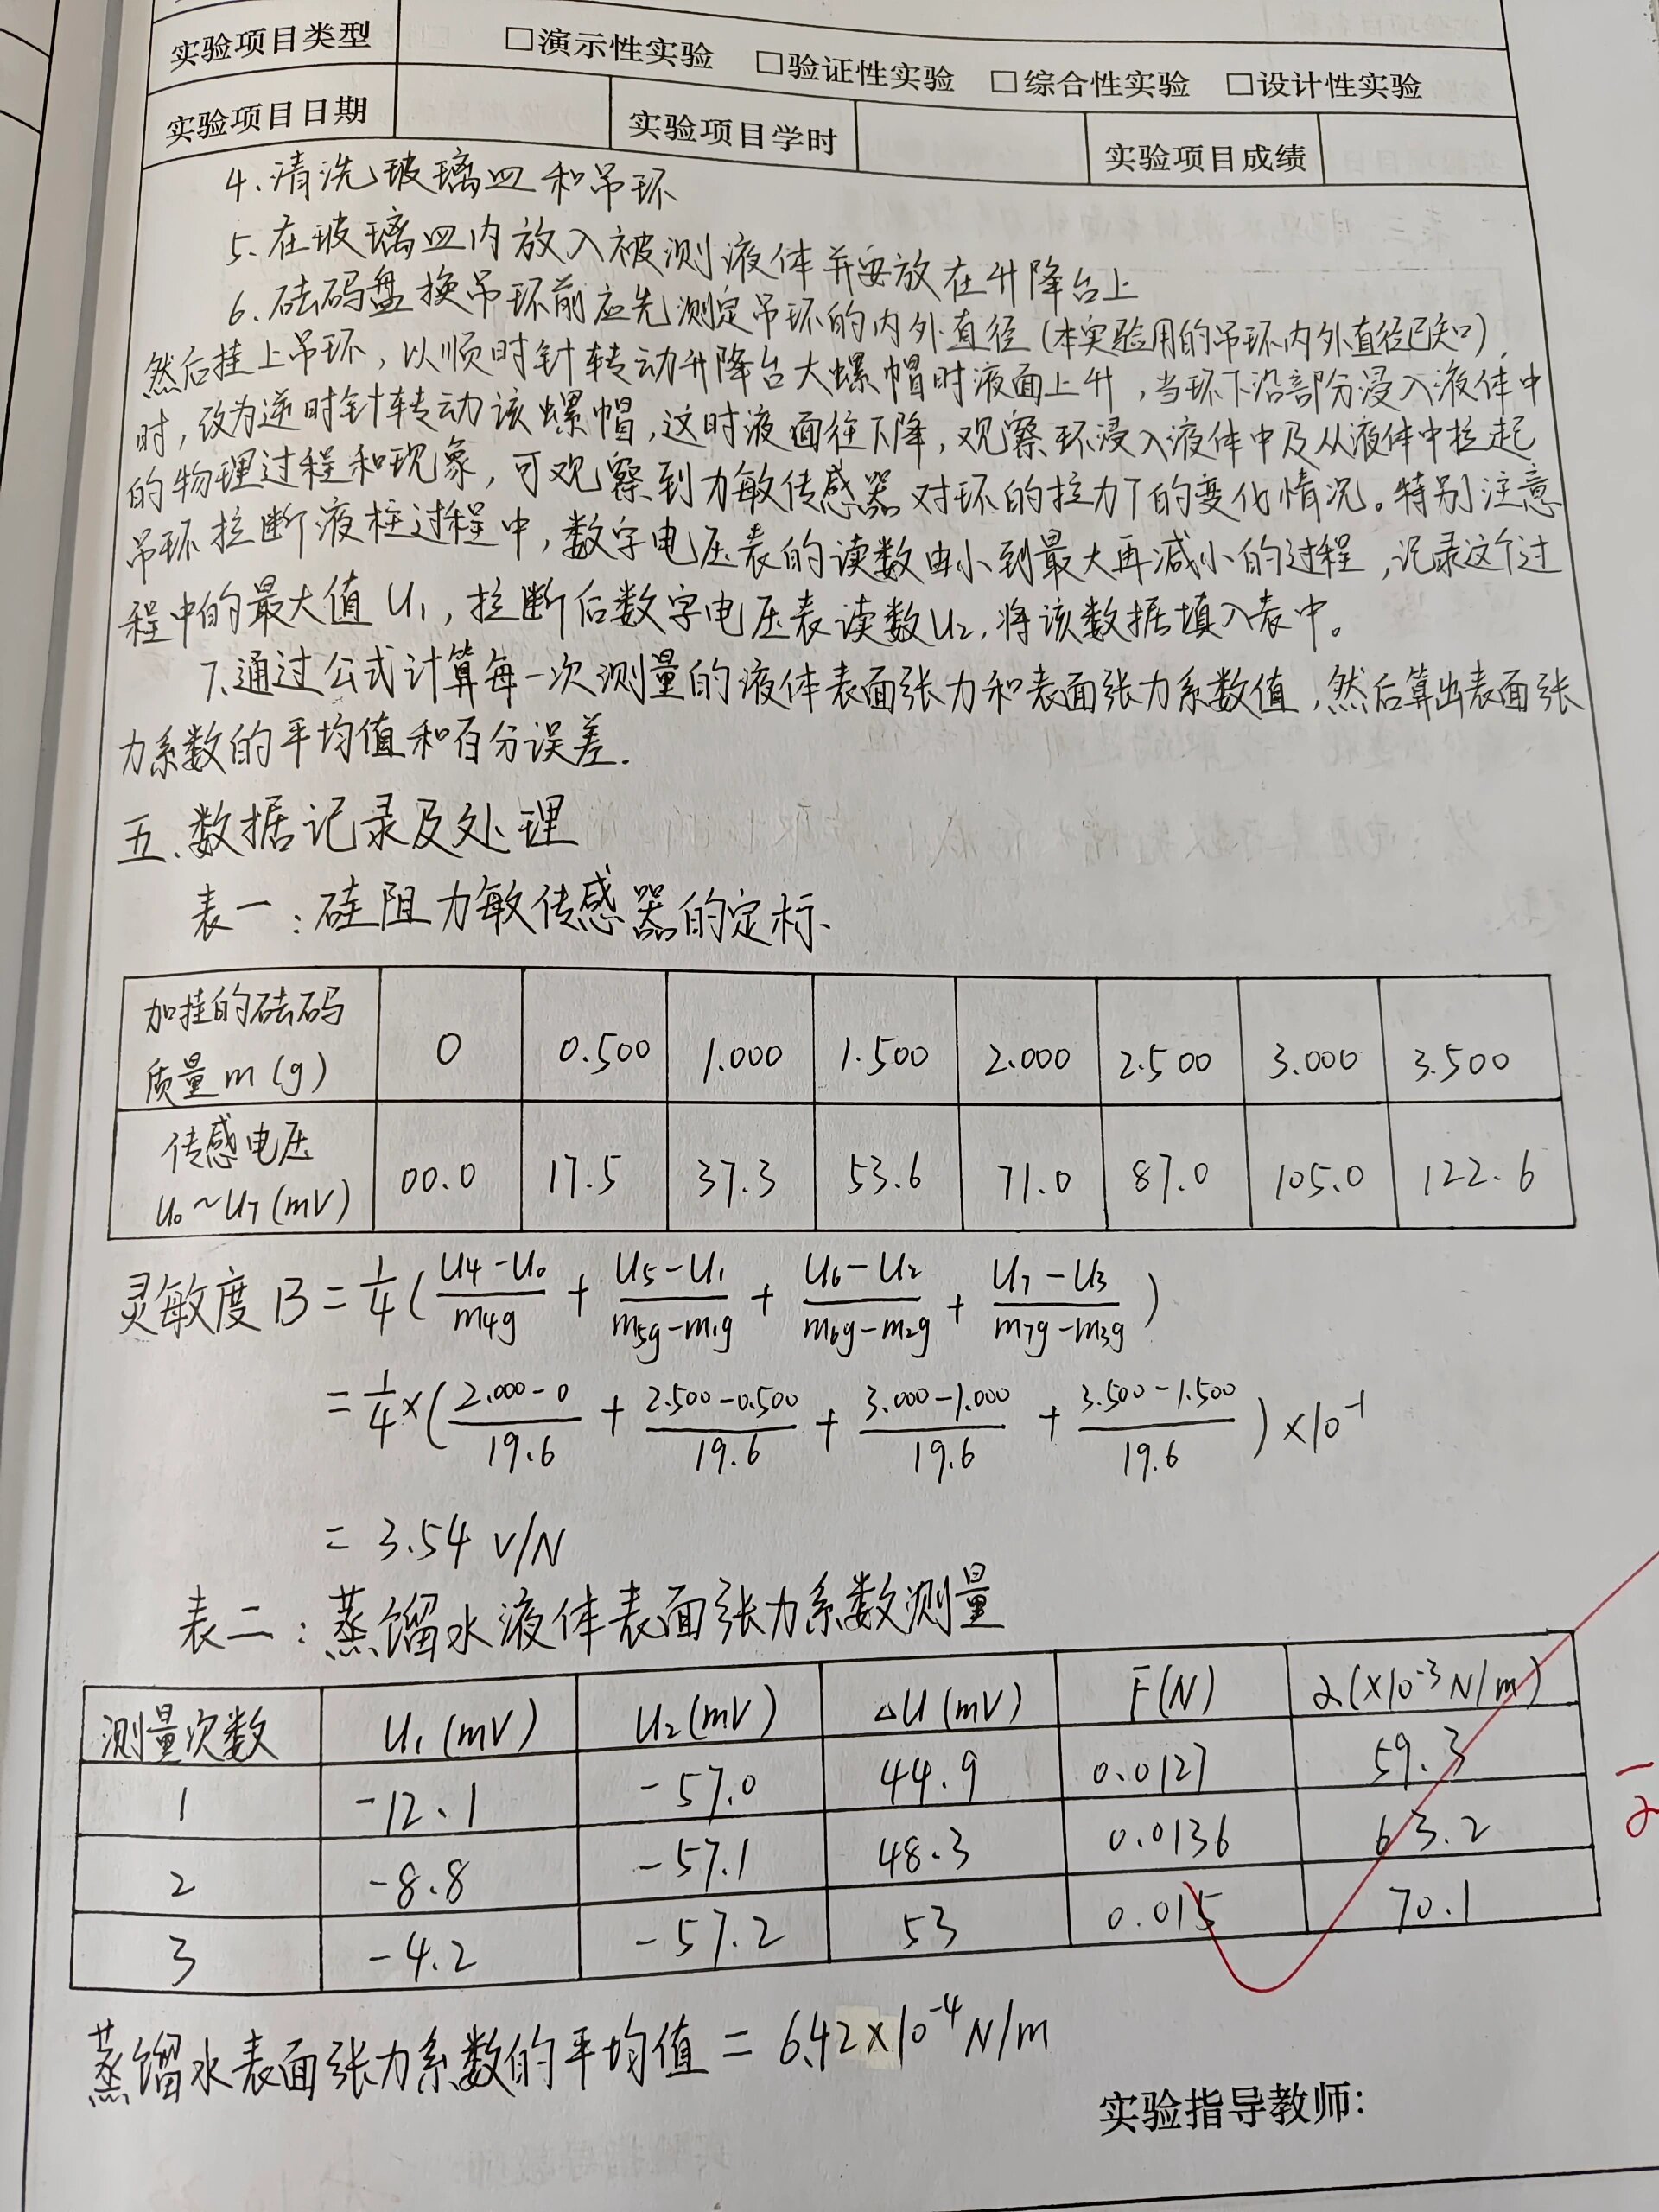 实验项目类型 □演示性实验 □验证性实验 □综合性实验 □设计性实验
实验项目日期 实验项目学时 实验项目成绩
4.清洗玻璃皿和吊环
5.在玻璃皿内放入被测液体并安放在升降台上
6.砝码盘换吊环前应先测定吊环的内外直径(本实验用的吊环内外直径已知),
然后挂上吊环,以顺时针转动升降台大螺帽时液面上升,当环下沿部分浸入液体中
时,改为逆时针转动该螺帽,这时液面往下降,观察环浸入液体中及从液体中拉起
的物理过程和现象,可观察到力敏传感器对环的拉力T的变化情况。特别注意
吊环拉断液柱过程中,数字电压表的读数由小到最大再减小的过程,记录这个过
程中的最大值U₁,拉断后数字电压表读数U₂,将该数据填入表中。
7.通过公式计算每一次测量的液体表面张力和表面张力系数值,然后算出表面张
力系数的平均值和百分误差.
五.数据记录及处理
表一:硅阻力敏传感器的定标.
加挂的砝码
质量m(g) 0 0.500 1.000 1.500 2.000 2.500 3.000 3.500
传感电压
U₀~U₇(mV) 00.0 17.5 37.3 53.6 71.0 87.0 105.0 122.6
灵敏度B=1/4((U₄-U₀)/(m₄g)+(U₅-U₁)/(m₅g-m₁g)+(U₆-U₂)/(m₆g-m₂g)+(U₇-U₃)/(m₇g-m₃g))
=1/4×((2.000-0)/19.6+(2.500-0.500)/19.6+(3.000-1.000)/19.6+(3.500-1.500)/19.6)×10⁻¹
=3.54 V/N
表二:蒸馏水液体表面张力系数测量
测量次数 U₁(mV) U₂(mV) △U(mV) F(N) α(×10⁻³N/m)
1 -12.1 -57.0 44.9 0.0127 59.3
2 -8.8 -57.1 48.3 0.0136 63.2
3 -4.2 -57.2 53 0.015 70.1
蒸馏水表面张力系数的平均值=6.42×10⁻⁴N/m
实验指导教师: